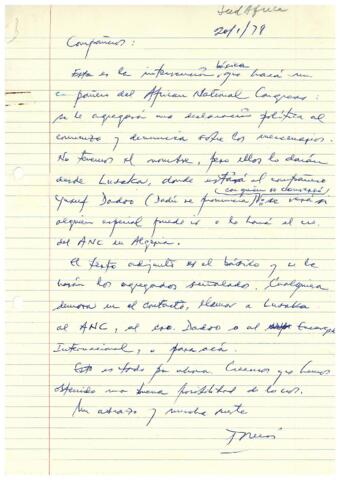 Sud Africa
20/1/79
Compañeros:
Esta es la intervención básica, que hará un
compañero del African National Congress:
se le agregará una declaración política al
comienzo y denuncia sobre los mercenarios.
No tenemos el nombre, pero ellos lo darán
desde Lusaka, donde estará el compañero
Yusuf Dadoo (Dadú se pronuncia) (con quien se conversó)
alguien especial puede ir o lo hará el
del ANC en Algeria.
El texto adjunto es el básico y se le
harán los agregados señalados. Cualquier
demora en el contacto, llamar a Lusaka
al ANC, al Dadoo o al Encarg
Internacional, o para acá.
Esto es todo por ahora. Creemos que hemos
obtenido una buena posibilidad de
Un abrazo y mucha suerte